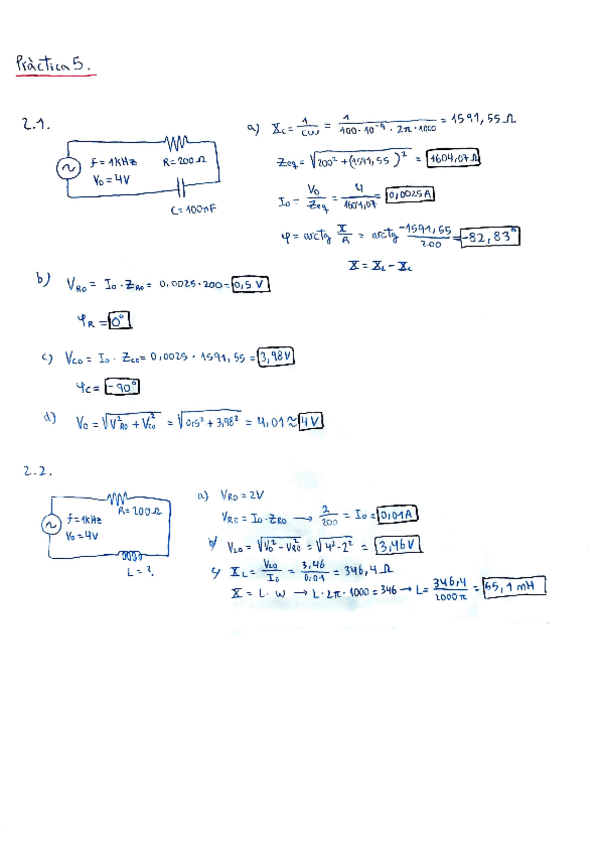 Pràctica 5.
2.1.
f = 1kHz
V₀ = 4V
R = 200Ω
C = 100nF
a) X_C = 1/(Cω) = 1/(100·10⁻⁹·2π·1000) = 1591,55 Ω
Zeq = √(200² + (1591,55)²) = 1604,07Ω
I₀ = V₀/Zeq = 4/1604,07 = 0,0025A
φ = arctg X/R = arctg -1591,55/200 = -82,83°
X = X_L - X_C
b) V_R0 = I₀ · Z_R0 = 0,0025·200 = 0,5 V
φ_R = 0°
c) V_C0 = I₀ · Z_C0 = 0,0025 · 1591,55 = 3,98V
φ_C = -90°
d) V₀ = √(V²_R0 + V²_C0) = √(0,5² + 3,98²) = 4,01 ≈ 4V
2.2.
R = 200Ω
f = 1kHz
V₀ = 4V
L = ?
a) V_R0 = 2V
V_R0 = I₀·Z_R0 → 2/200 = I₀ = 0,01A
b) V_L0 = √(V₀² - V_R0²) = √(4² - 2²) = 3,46V
c) X_L = V_L0/I₀ = 3,46/0,01 = 346,4 Ω
X = L · ω → L·2π·1000 = 346 → L = 346,4/2000π = 55,1 mH